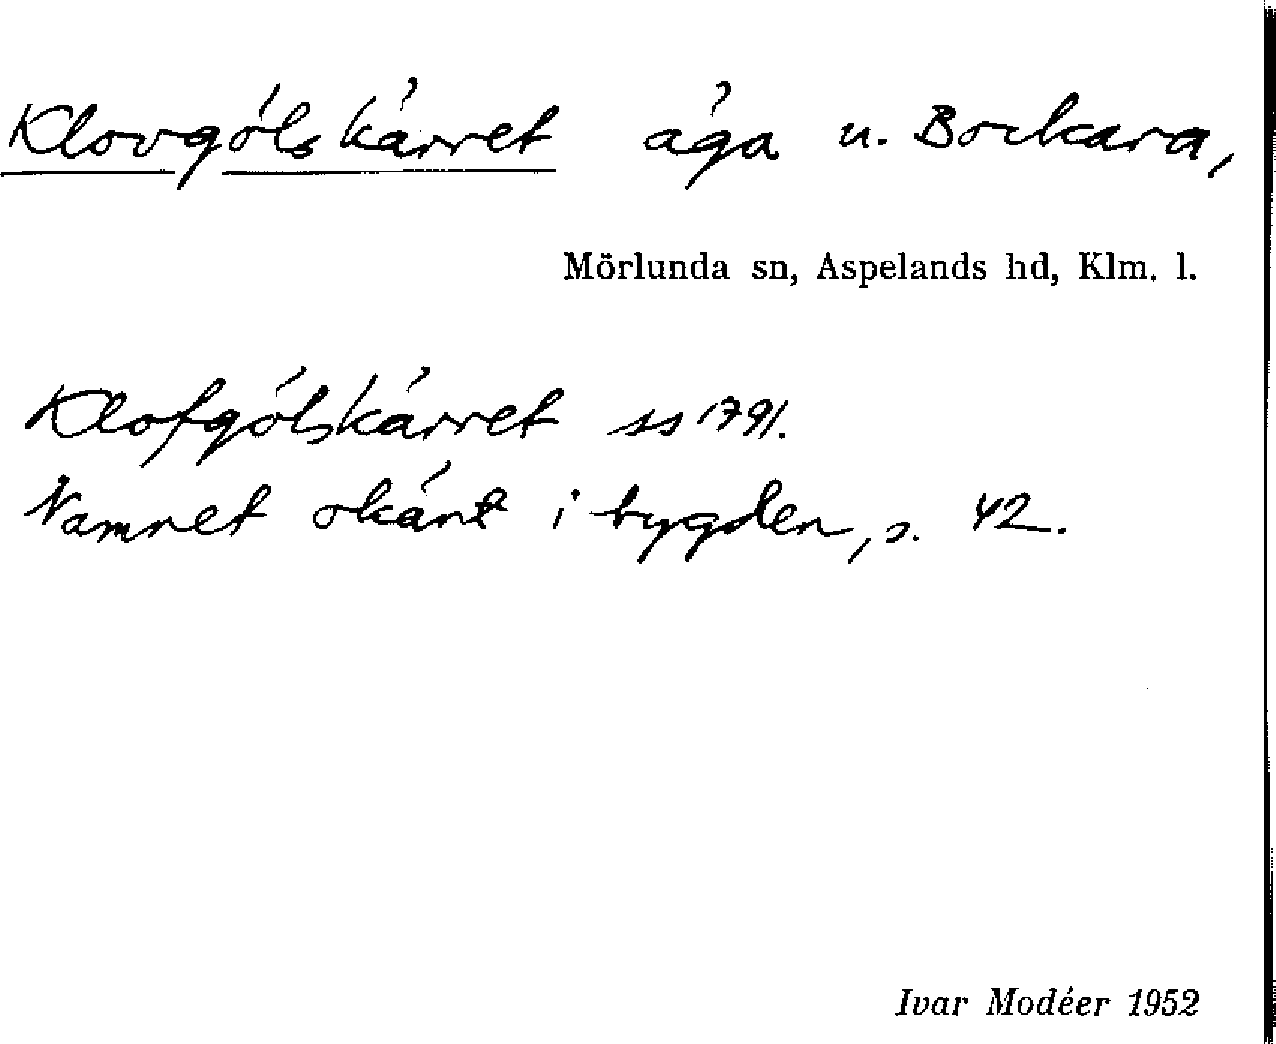 Klovgölskärret äga u. Bockara,
Mörlunda sn, Aspelands hd, Klm. l.
Klofgölskärret ss 1791.
Namnet okänt i bygden, s. 42.
Ivar Modéer 1952